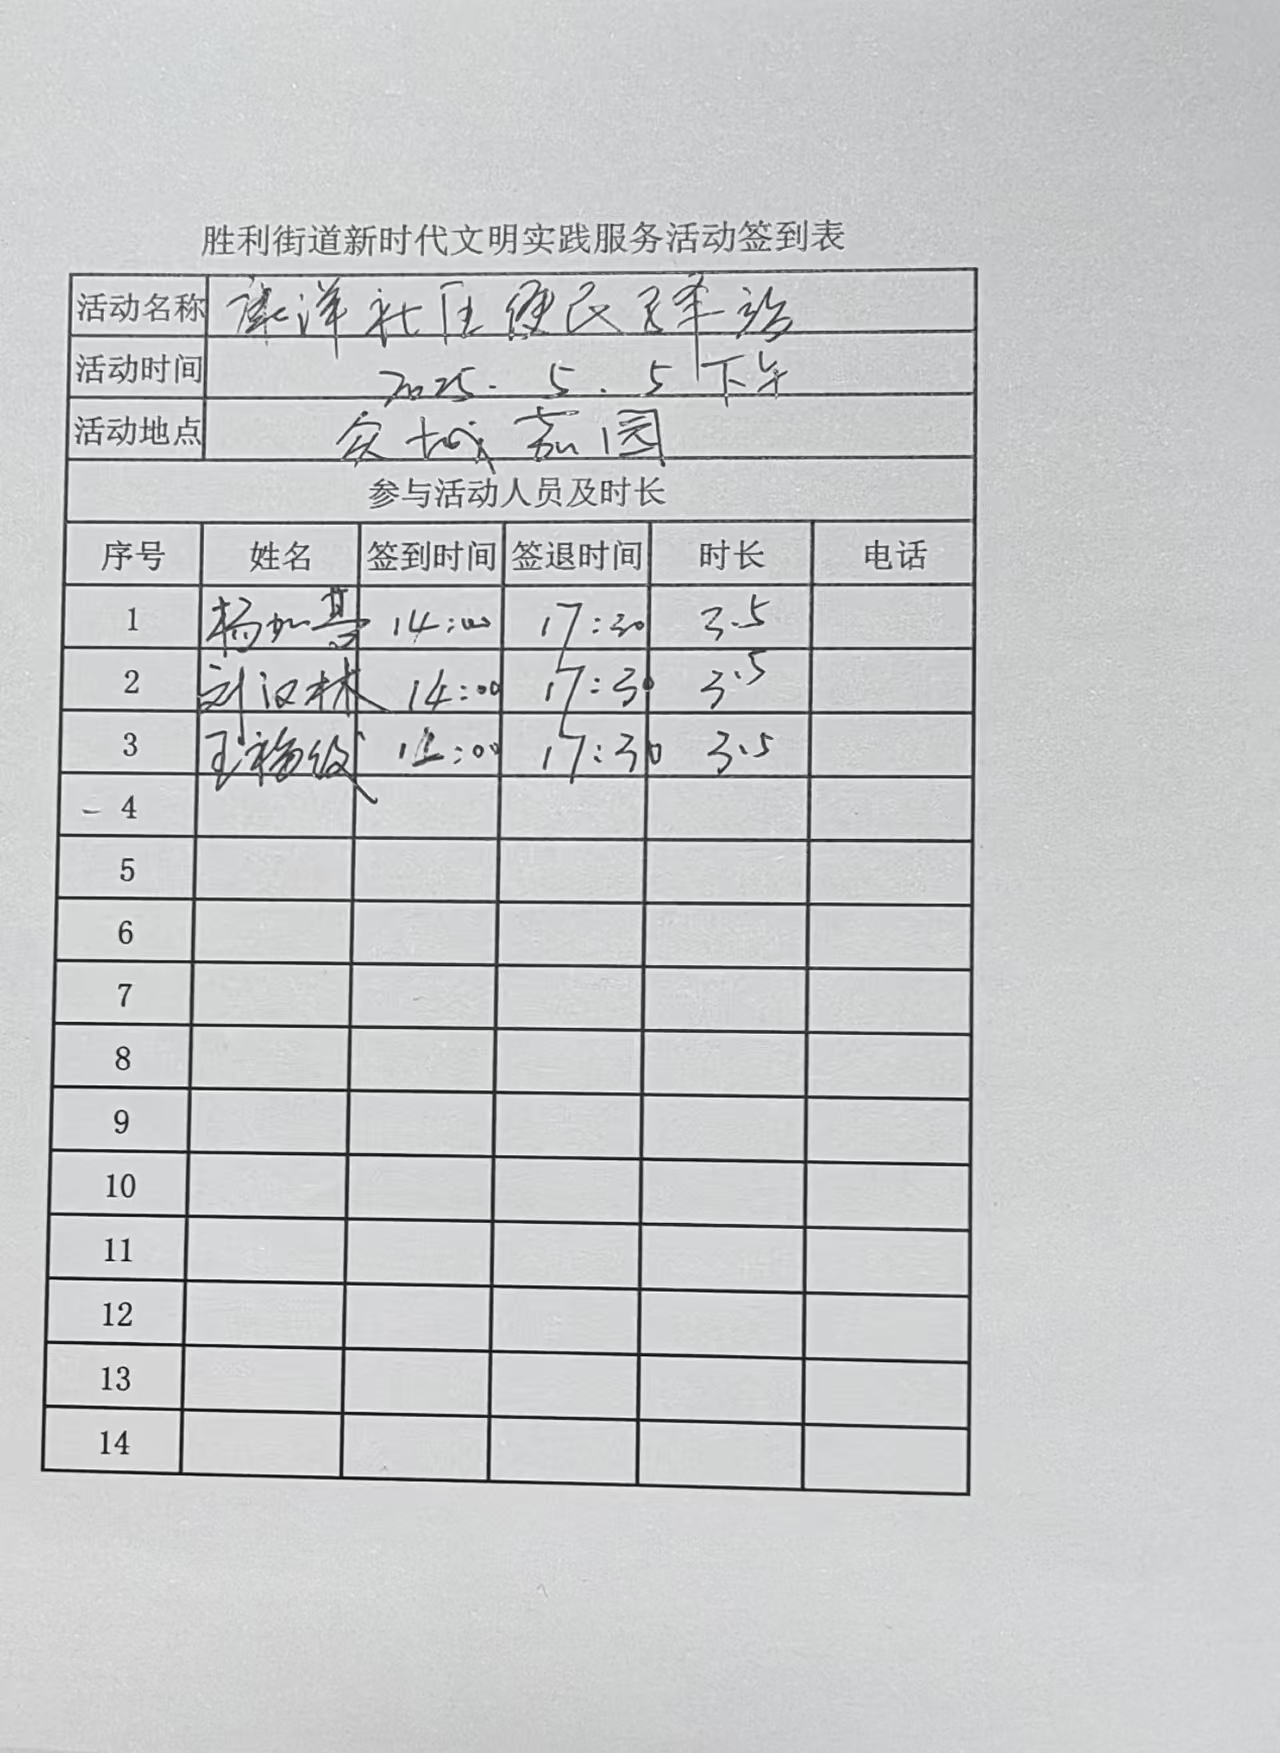 胜利街道新时代文明实践服务活动签到表
活动名称 康洋社区便民驿站
活动时间 2025.5.5下午
活动地点 众城嘉园
参与活动人员及时长
序号 姓名 签到时间 签退时间 时长 电话
1 杨加 14:00 17:30 3.5
2 刘汉林 14:00 17:30 3.5
3 王福 14:00 17:30 3.5
4
5
6
7
8
9
10
11
12
13
14